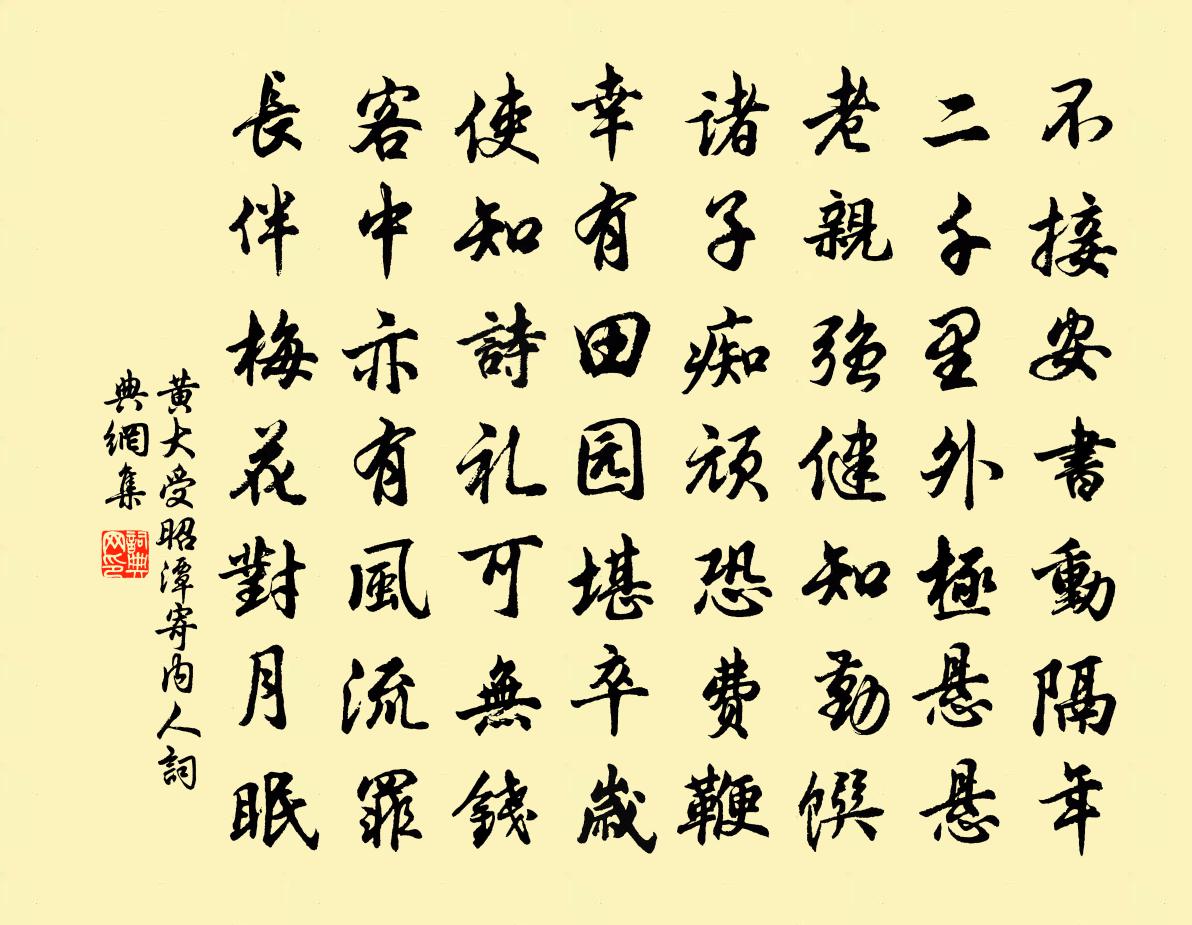 不接安書動隔年
二千里外極悬悬
老親強健知勤饌
諸子痴頑恐費鞭
幸有田园堪卒歲
使知詩礼可無錢
客中亦有風流罪
長伴梅花對月眠
黃大受昭潭寄内人詞
典網集
詞典
网印